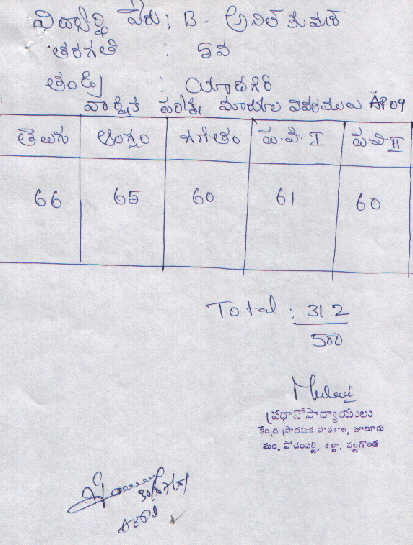 విద్యార్థి పేరు : B. అనిల్ కుమార్
తరగతి : 5వ
తండ్రి : యాదగిరి
వార్షిక పరీక్ష మార్కుల వివరములు
తెలుగు ఆంగ్లం గణితం ప.వి. I ప.వి II
66 65 60 61 60
Total : 312
500
ప్రధానోపాధ్యాయులు
మం. పోచంపల్లి, జిల్లా, నల్లగొండ